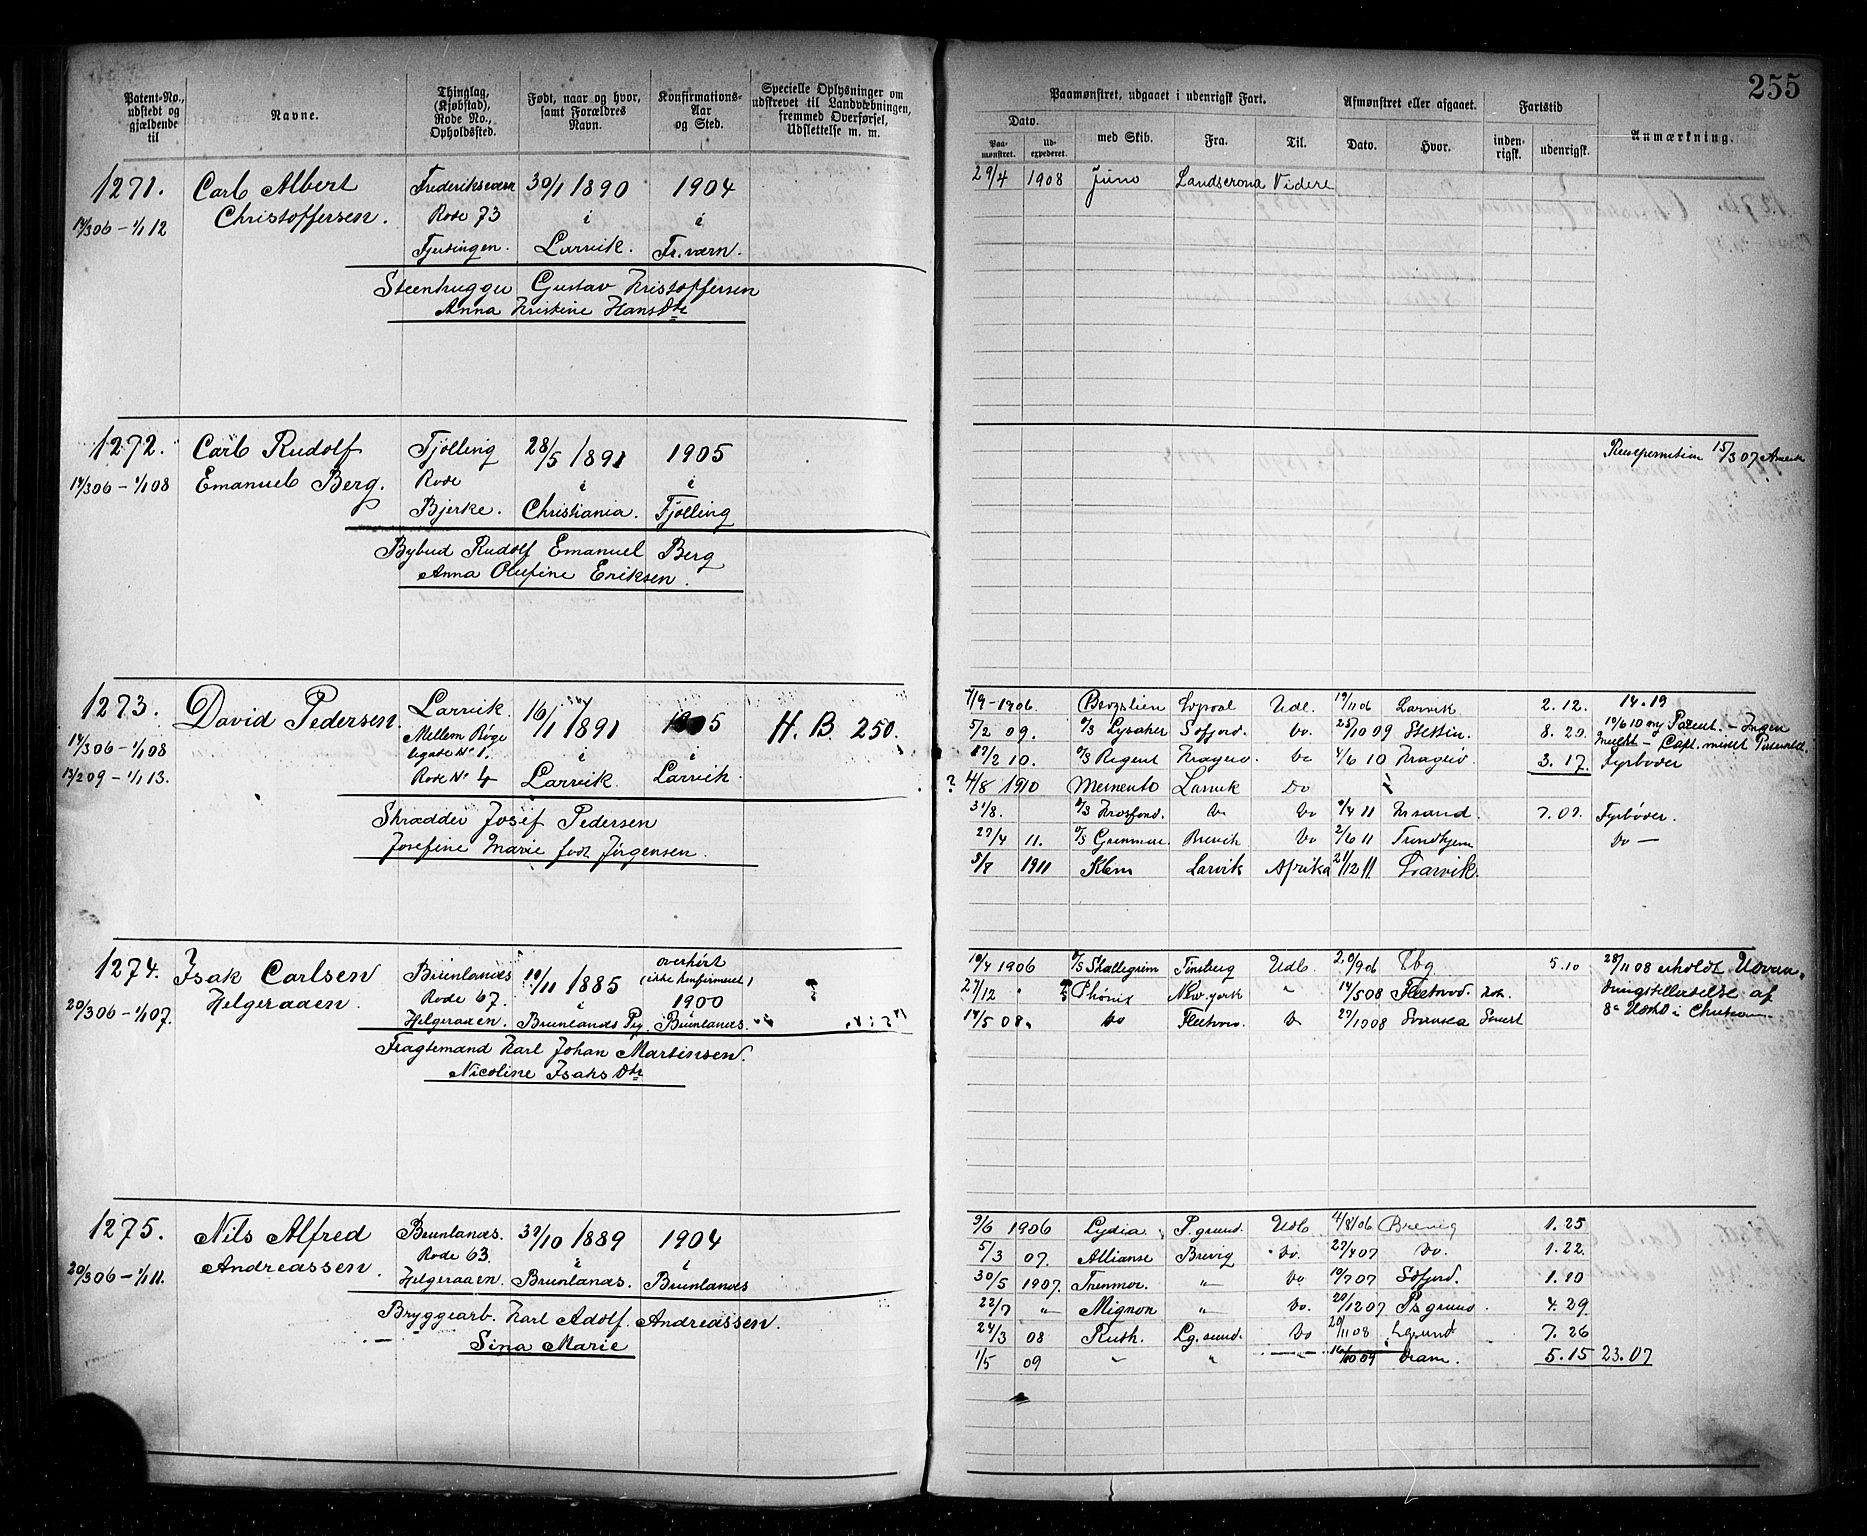 255
Patent-No., udstedt og gjældende til
Navne.
Thinglag, (Kjøbstad), Rode No., Opholdssted.
Født, naar og hvor, samt Forældres Navn.
Konfirmations-Aar og Sted.
Specielle Oplysninger om udskrevet til Landværnet, fremmed Overførsel, Udslettelse m. m.
Paamønstret, udgaaet i udenrigsk Fart.
Dato.
Paa-mønstret.
Ud-expederet.
med Skib.
Fra.
Til.
Afmønstret eller afgaaet.
Dato.
Hvor.
Fartstid
inden-rigsk.
udenrigsk.
Anmærkning.
1271. Carl Albert Frederiksværn 30/1 1890 1904
14/3 06 – 1/1 12 Christoffersen. Rode 73 i i
Larvik. Fr.værn.
Steenhugger Gustav Kristoffersen
Anna Kristine Hans Dtr
29/4 1908 Juno Landscrona Videre
1272. Carl Rudolf Tjølling 28/5 1891 1905
14/3 06 – 1/1 08 Emanuel Berg. Rode i i
Bjerke. Christiania. Tjølling
Bybud Rudolf Emanuel Berg
Anna Olufine Eriksen.
15/3 07
1273. David Pedersen. Larvik. 16/11 1891 1905 H. B. 250.
14/3 06 – 1/1 08 Mellem Bøge
ligate No 1. i i
13/2 09 – 1/1 13. Rode No 4 Larvik. Larvik.
Skrædder Josef Pedersen
Josefine Marie født Jørgensen.
7/9 - 1906. Udl. Larvik 2. 12. 14. 19
5/2 09. D/S Lysaker Do. 25/10 09 Stettin. 8. 20. 14/6 10 ny Patent. – Ingen
17/2 10. D/S Regent Kragerø. Do 4/6 10 Kragerø 3. 17. Fyrbøder
? 4/8 1910 Memento Larvik Do
31/8. D/S Do Do 9/4 11 Krsand. 7. 09. Fyrbøder.
27/4 11. D/S Grenmar. Brevik Do 2/6 11 Trondhjem Do –
5/8 1911 Klem Larvik Afrika 21/12 11 Larvik.
1274. Isak Carlsen Brunlanæs 10/11 1885 overhørt (ikke konfirmeret)
20/3 06 – 1/1 07. Helgeraaen. Rode 67. i 1900 i
Helgeraaen. Brunlanæs Pg. Brunlanæs.
Fragtemand Karl Johan Martinsen.
Nicoline Isaks Dtr
10/4 1906 D/S Skallegrim Tønsberg Udl. 20/9 06 Tbg 5. 10 28/11 08 erholdt Udvan-
27/12 " Phønix New-york " 14/5 08 Fleetwod. dringstilladelse af
14/5 08. Do Fleetwo. Do 27/10 08 Swansea
1275. Nils Alfred Brunlanæs. 30/10 1889 1904
20/3 06 – 1/1 11. Andreassen. Rode 63. i i
Helgeraaen. Brunlanæs. Brunlanæs
Bryggearb. Karl Adolf Andreassen.
Sina Marie
9/6 1906 Lydia P. grund. Udl. 4/8 06 Brevig 1. 25
5/3 07. Allianse Brevig Do. 27/4 07 Do. 1. 22.
30/5 1907. " Do 10/7 07 1. 10
22/7 " Mignon " Do. 20/12 07 Ps grund. 4. 29
24/3 08 Ruth. Lg. sund. Do 20/11 08 7. 26
1/5 09 " " 16/10 09 Dram. 5. 15 23. 07